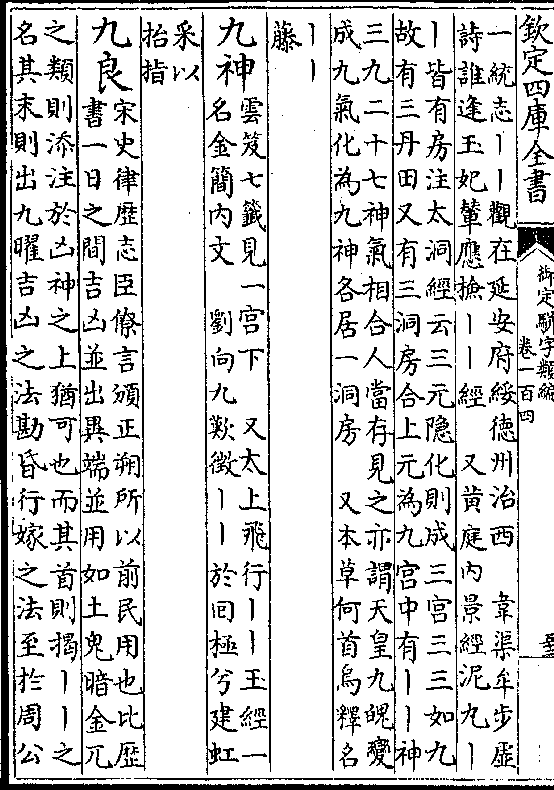 欽定四庫全書
御定駢字類編
卷一百四
一統志丨丨觀在延安府綏德州治西 韋渠牟步虛
詩誰逢玉妃輦應撿丨丨經 又黄庭内景經泥九丨
丨皆有房注太洞經云三元隱化則成三宫三三如九
故有三丹田又有三洞房合上元為九宫中有丨丨神
三九二十七神氣相合人當存見之亦謂天皇九魄變
成九氣化為九神各居一洞房 又本草何首烏釋名
丨丨
藤
九神
雲笈七籖見一宫下 又太上飛行丨丨玉經一
名金簡内文 劉向九歎徵丨丨於囘極兮建虹
采以
招指
九良
宋史律歴志臣僚言頒正朔所以前民用也比歴
書一日之間吉凶並出異端並用如土鬼暗金兀
之類則添注於凶神之上猶可也而其首則揭丨丨之
名其末則出九曜吉凶之法勘昏行嫁之法至於周公